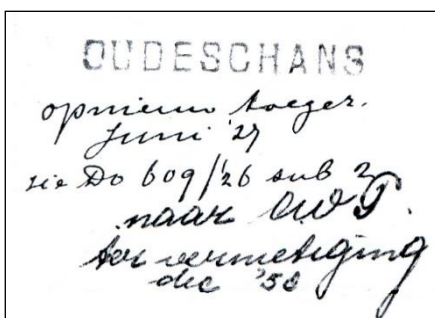 OUDESCHANS
opnieuw toegez.
Juni '27
zie Do 609/'26 sub 2
naar
ter vernietiging
dec '58